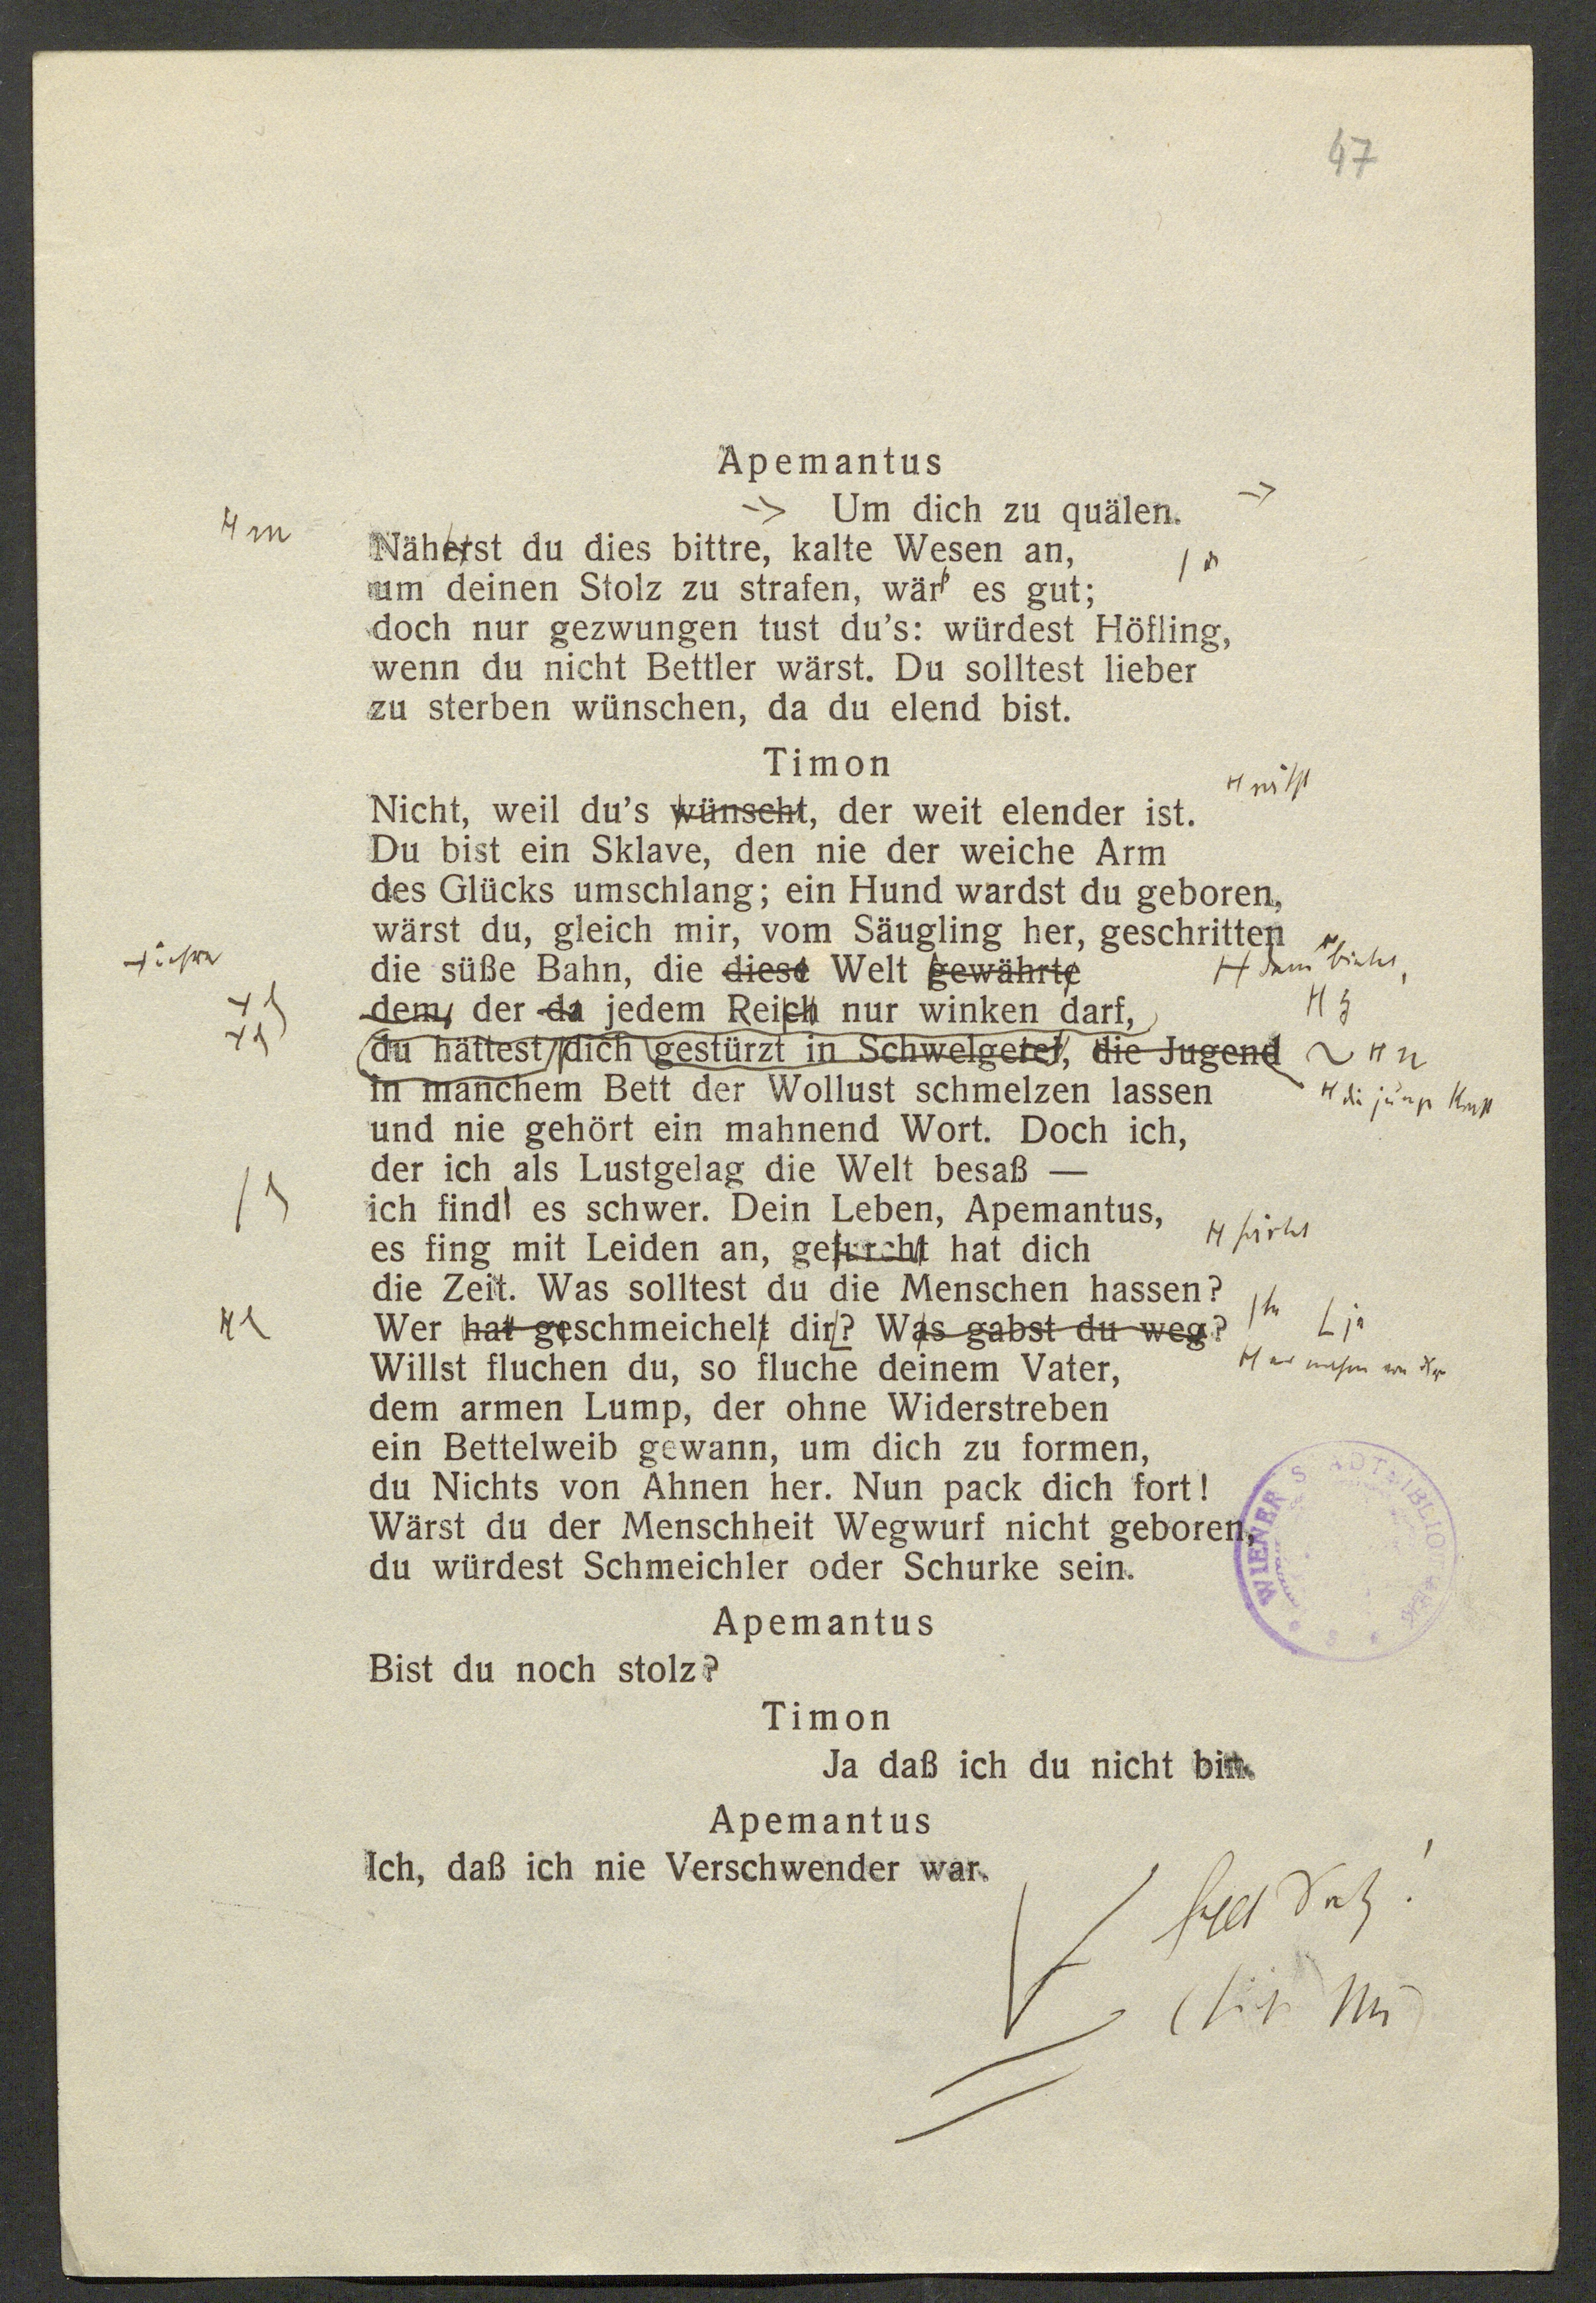 47
Apemantus
Um dich zu quälen.
Näherst du dies bittre, kalte Wesen an,
um deinen Stolz zu strafen, wär' es gut;
doch nur gezwungen tust du's: würdest Höfling,
wenn du nicht Bettler wärst. Du solltest lieber
zu sterben wünschen, da du elend bist.
Timon
Nicht, weil du's wünscht, der weit elender ist.
Du bist ein Sklave, den nie der weiche Arm
des Glücks umschlang; ein Hund wardst du geboren,
wärst du, gleich mir, vom Säugling her, geschritten
die süße Bahn, die diese Welt gewährte
dem, der da jedem Reich nur winken darf,
du hättest dich gestürzt in Schwelgerei, die Jugend
in manchem Bett der Wollust schmelzen lassen
und nie gehört ein mahnend Wort. Doch ich,
der ich als Lustgelag die Welt besaß —
ich find' es schwer. Dein Leben, Apemantus,
es fing mit Leiden an, gefurcht hat dich
die Zeit. Was solltest du die Menschen hassen?
Wer hat geschmeichelt dir? Was gabst du weg? ja
Willst fluchen du, so fluche deinem Vater,
dem armen Lump, der ohne Widerstreben
ein Bettelweib gewann, um dich zu formen,
du Nichts von Ahnen her. Nun pack dich fort!
Wärst du der Menschheit Wegwurf nicht geboren,
du würdest Schmeichler oder Schurke sein.
Apemantus
Bist du noch stolz?
Timon
Ja daß ich du nicht bin.
Apemantus
Ich, daß ich nie Verschwender war.
WIENER STADTBIBLIOTHEK